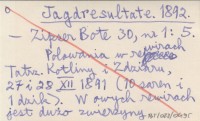 Jagdresultate. 1892.
– Zipser Bote 30, nr 1: 5.
Polowania w rewirach
Tatrz. Kotliny i Zdziaru,
27 i 28 XII 1891 (10 saren i
1 dzik). W owych rewirach
jest dużo zwierzyny.